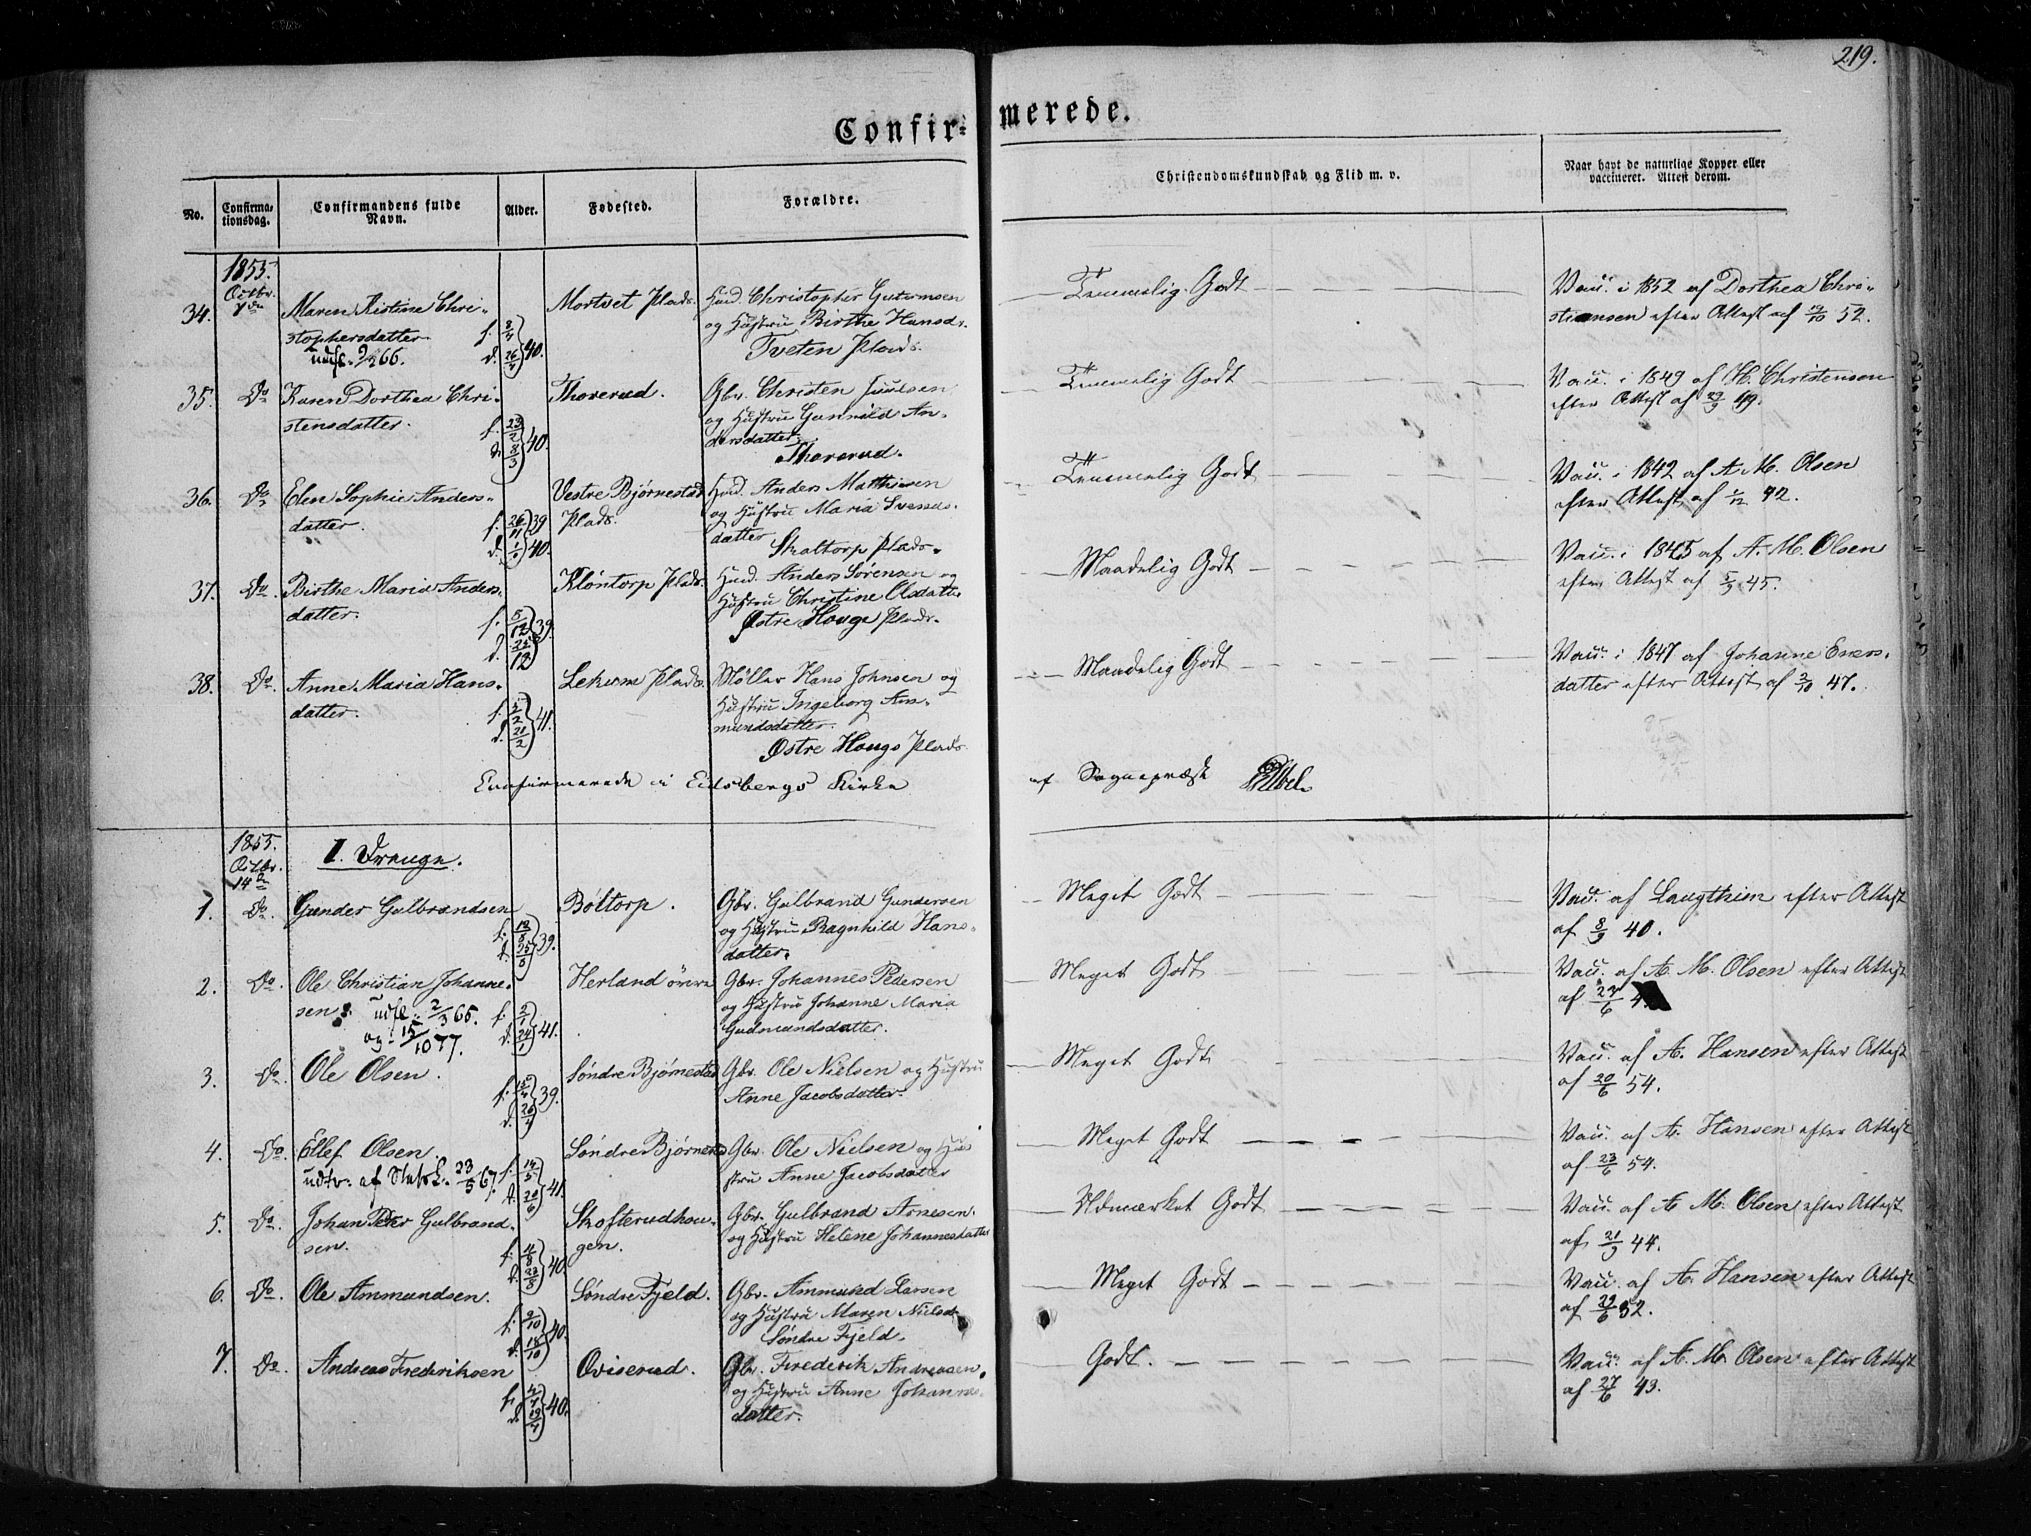 219.
Confir- merede.
No.
Confirma-
tionsdag.
Confirmandens fulde
Navn.
Alder.
Fødested.
Forældre.
Christendomskundskab og Flid m. v.
Naar havt de naturlige Kopper eller
vaccineret. Attest derom.
1855.
Octbr.
7de
34.
Maren Kistine Chri-
stophersdatter.
udfl. 9/2 66.
f. 2/4
d. 26/4 } 40.
Mortvet Plads.
Huusmd. Christopher Gutormsen
og Hustru Birthe Hansd.
Tveten Plads.
Temmelig Godt
Vacc. i 1852 af Dorthea Chri-
stiansen efter Attest af 12/10 52.
35. Do
Karen Dorthea Chri-
stensdatter.
f. 23/2
d. 8/3 } 40.
Thorerud.
Gbr. Christen Juulsen
og Hustru Gunnild An-
dersdatter
Thorerud.
Temmelig Godt
Vacc. i 1849 af H. Christensen
efter Attest af 29/9 49.
36. Do
Elen Sophie Anders-
datter.
f. 26/11 39
d. 1/1 40.
Vestre Bjørnestad
Plads.
Huusmd. Anders Matthisen
og Hustru Maria Svends-
datter
Skaltorp Plads.
Temmelig Godt
Vacc. i 1842 af A. M. Olsen
efter Attest af 1/12 42.
37. Do.
Birthe Maria Anders-
datter.
f. 5/12
d. 25/12 } 39.
Kløntorp Plads.
Huusmd. Anders Sørensen og
Hustru Christine Olsdatter
Østre Houge Plads.
Maadelig Godt
Vacc. i 1845 af A. M. Olsen
efter Attest af 5/9 45.
38. Do.
Anne Maria Hans-
datter.
f. 5/2
d. 21/2 } 41.
Lekum Plads.
Møller Hans Johnsen og
Hustru Ingeborg Am-
mundsdatter.
Østre Hougs Plads.
Maadelig Godt
Vacc. i 1847 af Johanne Evers-
datter efter Attest af 2/10 47.
Confirmerede i Eidsbergs Kirke af Sognepræst
1855.
Octbr.
14de
I. Drenge.
1. Do.
Gunder Gulbrandsen
f. 12/8
d. 25/8 } 39.
Boltorp.
Gbr. Gulbrand Gundersen
og Hustru Ragnhild Hans-
datter.
Meget Godt
Vacc. af Laugthim efter Attest
af 8/9 40.
2. Do.
Ole Christian Johanne-
sen. udfl. 2/3 65.
og 15/10 77.
f. 2/1
d. 24/1 } 41.
Herland øvre
Gbr. Johannes Pedersen
og Hustru Johanne Maria
Gudmundsdatter.
Meget Godt
Vacc. af A. M. Olsen efter Attest
af 23/6 4
3. Do.
Ole Olsen.
f. 15/4
d. 26/4 } 39.
Søndre Bjørnestad
Gbr. Ole Nielsen og Hustru
Anne Jacobsdatter.
Meget Godt
Vacc. af A. Hansen efter Attest
af 20/6 54.
4. Do.
Ellef Olsen.
udtr. af Statsk. 23/5 67.
f. 14/5
d. 20/6 } 41.
Søndre Bjørnestad
Gbr. Ole Nielsen og Hu-
stru Anne Jacobsdatter
Meget Godt
Vacc. af A. Hansen efter Attest
af 23/6 54.
5. Do.
Johan Peter Gulbrand-
sen.
f. 4/8
d. 23/8 } 40.
Skofterudhou-
gen.
Gbr. Gulbrand Arnesen.
og Hustru Helene Johannesdatter
Udmærket Godt
Vacc. af A. M. Olsen efter Attest
af 21/9 44.
6. Do.
Ole Ammundsen.
f. 2/10
d. 18/10 } 40.
Søndre Fjeld.
Gbr. Ammund Larsen
og Hustru Maren Nielsd.
Søndre Fjeld.
Meget Godt
Vacc. af A. Hansen efter Attest
af 29/6 52.
7. Do.
Andreas Frederiksen
f. 4/4
d. 19/4 } 40.
Oviserud.
Gbr. Frederik Andreasen.
og Hustru Anne Johannes-
datter.
Godt.
Vacc. af A. M. Olsen efter Attest
af 27/6 43.